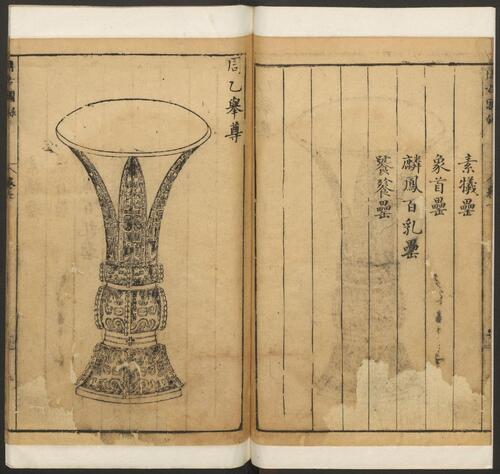 素犧罍
象首罍
麟鳳百乳罍
饕餮罍
周乙舉尊